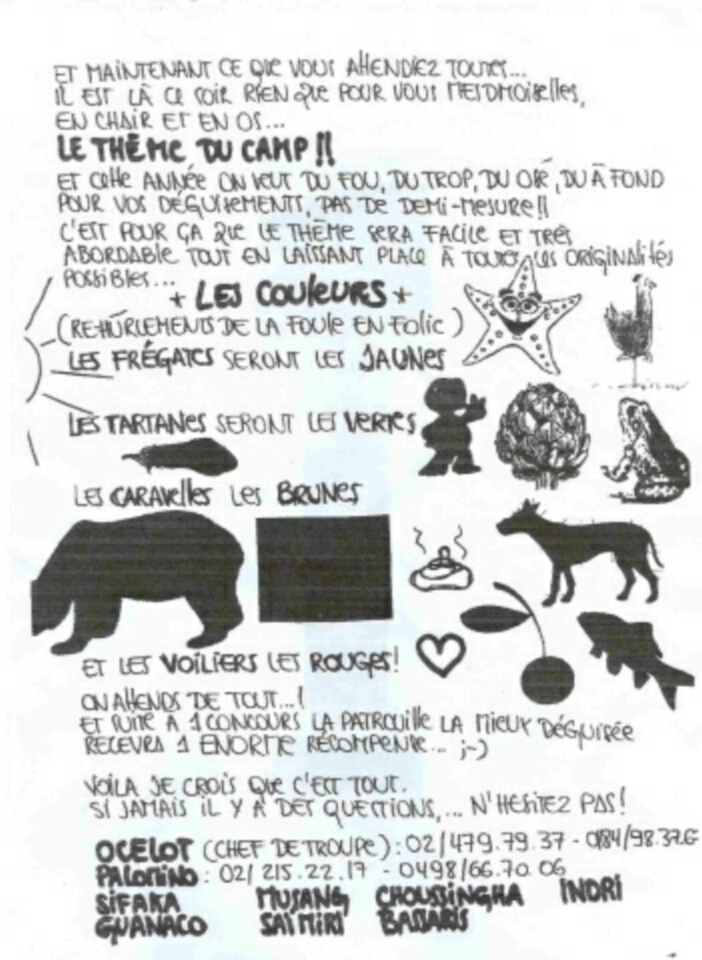 ET MAINTENANT CE QUE VOUS ATTENDIEZ TOUTES...
IL EST LÀ CE SOIR RIEN QUE POUR VOUS MESDMOISELLES,
EN CHAIR ET EN OS...
LE THÈME DU CAMP !!
ET CETTE ANNÉE ON VEUT DU FOU, DU TROP, DU OSÉ, DU À FOND
POUR VOS DÉGUISEMENTS, PAS DE DEMI-MESURE !!
C'EST POUR ÇA QUE LE THÈME SERA FACILE ET TRÈS
ABORDABLE TOUT EN LAISSANT PLACE À TOUTES LES ORIGINALITÉS
POSSIBLES...
+ LES COULEURS +
(RE-HURLEMENTS DE LA FOULE EN FOLIE)
LES FRÉGATES SERONT LES JAUNES
LES TARTANES SERONT LES VERTES
LES CARAVELLES LES BRUNES
ET LES VOILIERS LES ROUGES !
ON ATTENDS DE TOUT...!
ET SUITE À 1 CONCOURS LA PATROUILLE LA MIEUX DÉGUISÉE
RECEVRA 1 ENORME RÉCOMPENSE... ;-)
VOILA JE CROIS QUE C'EST TOUT.
SI JAMAIS IL Y A DES QUESTIONS,... N'HESITEZ PAS !
OCELOT (CHEF DE TROUPE) : 02/479.79.37 -
PALOMINO : 02/215.22.17 - 0498/66.70.06
SIFAKA MUSANG CHOUSSINGHA INDRI
GUANACO SAÏMIRI BASSARIS